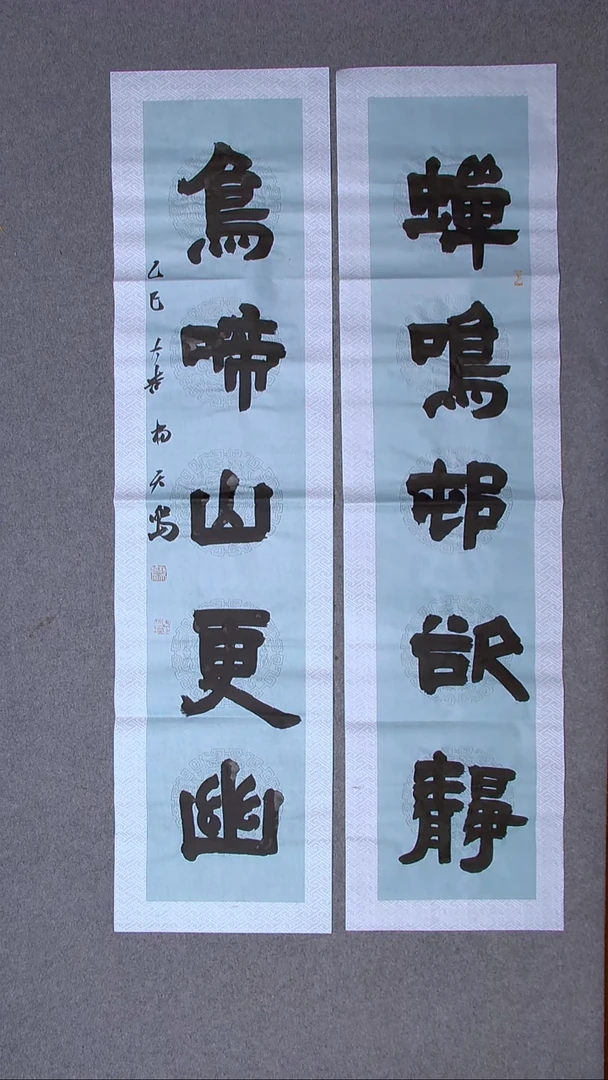 蟬鳴邨欲靜
鳥啼山更幽
乙巳大吉杨天